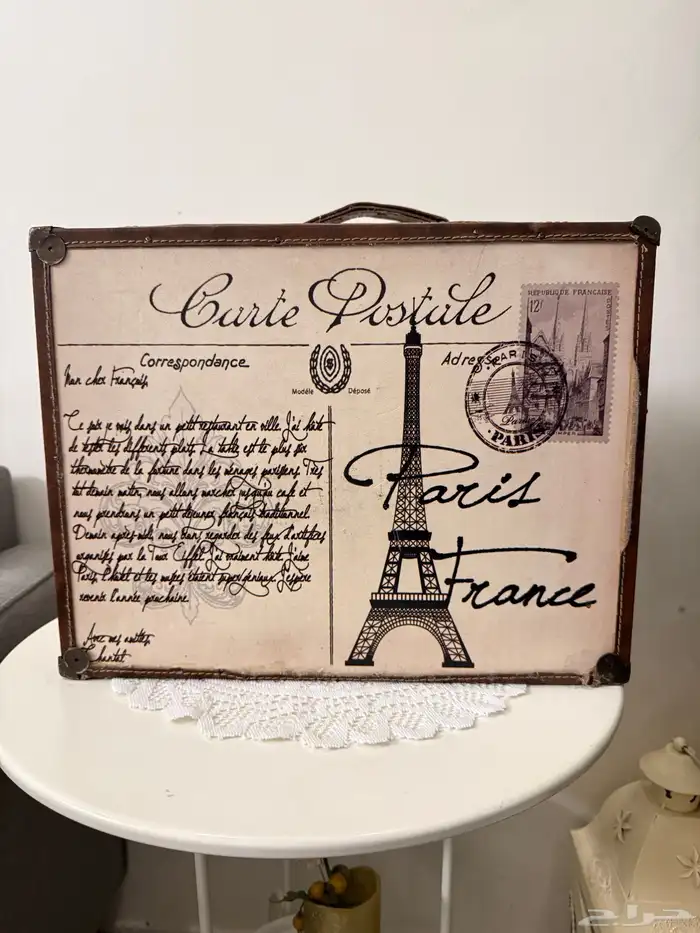 Carte Postale
REPUBLIQUE FRANÇAISE
12F
Correspondance
Adres
PARIS
Paris
PARIS
Modèle Déposé
Mon cher François,
Ce soir je vais dans un petit restaurant en ville. J'ai hâte
de tester les différents plats. La table est le plus sûr
thermomètre de la fortune dans les ménages parisiens. Très
tôt demain matin, nous allons marcher jusqu'au café et
nous prendrons un petit déjeuner français traditionnel
Demain après-midi, nous irons regarder des feux d'artifices
organisés par la Tour Eiffel. J'ai vraiment hâte. J'aime
Paris, l'hôtel et les étaient super géniaux. J'espère
revenir l'année prochaine
Avec mes amitiés,
Chantal
Paris
France
حراج